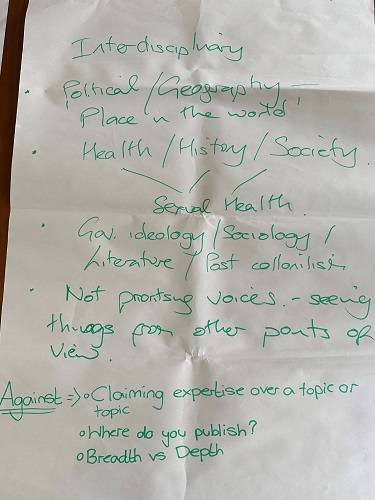 Interdisciplinary
• Political / Geography –
'Place in the world'
• Health / History / Society.
Sexual Health.
• Gov. ideology / Sociology /
Literature / Post collonilism
• Not prortising voices. – seeing
things from other points of
view.
Against => ∘ Claiming expertise over a topic or
topic
∘ Where do you publish?
∘ Breadth vs Depth